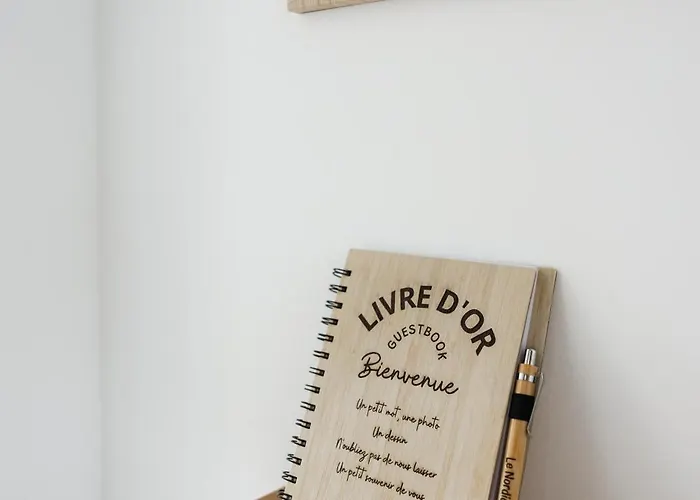 LIVRE D'OR
GUESTBOOK
Bienvenue
Un petit mot, une photo
Un dessin
N'oubliez pas de nous laisser
Un petit souvenir de vous
Le Nordi